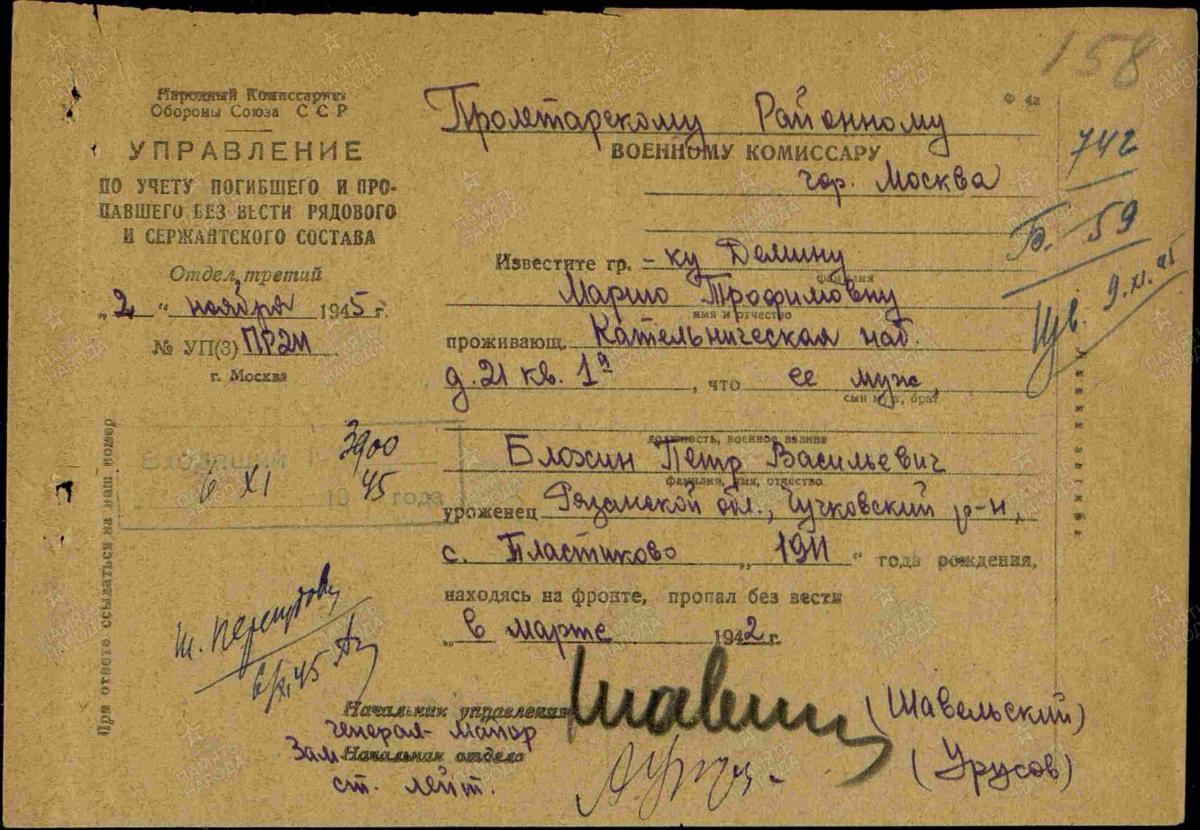 158
Народный Комиссариат
Обороны Союза ССР
УПРАВЛЕНИЕ
ПО УЧЕТУ ПОГИБШЕГО И ПРО-
ПАВШЕГО БЕЗ ВЕСТИ РЯДОВОГО
И СЕРЖАНТСКОГО СОСТАВА
Отдел третий
„2" ноября 1945 г.
№ УП(3) ПР2М
г. Москва
Ф 4а
Пролетарскому Районному
ВОЕННОМУ КОМИССАРУ
гор. Москва
742
Б. 59
Ув. 9.XI.45
Известите гр. -ку Демину
фамилия
Марию Трофимовну
имя и отчество
проживающ. Кательническая наб.
д. 21 кв. 1а, что ее муж,
сын муж, брат
должность, военное звание
Блохин Петр Васильевич
фамилия, имя, отчество
уроженец Рязанской обл., Чучковский р-н,
с. Пластиково „1911" года рождения,
находясь на фронте, пропал без вести
„в марте 1942 г.
Входящий 3900
6 XI 1945 года
При ответе ссылаться на наш номер
6/XI 45
Начальник управления
генерал-майор
(Шавельский)
Зам Начальник отдела
ст. лейт.
(Урусов)
ПАМЯТЬ НАРОДА